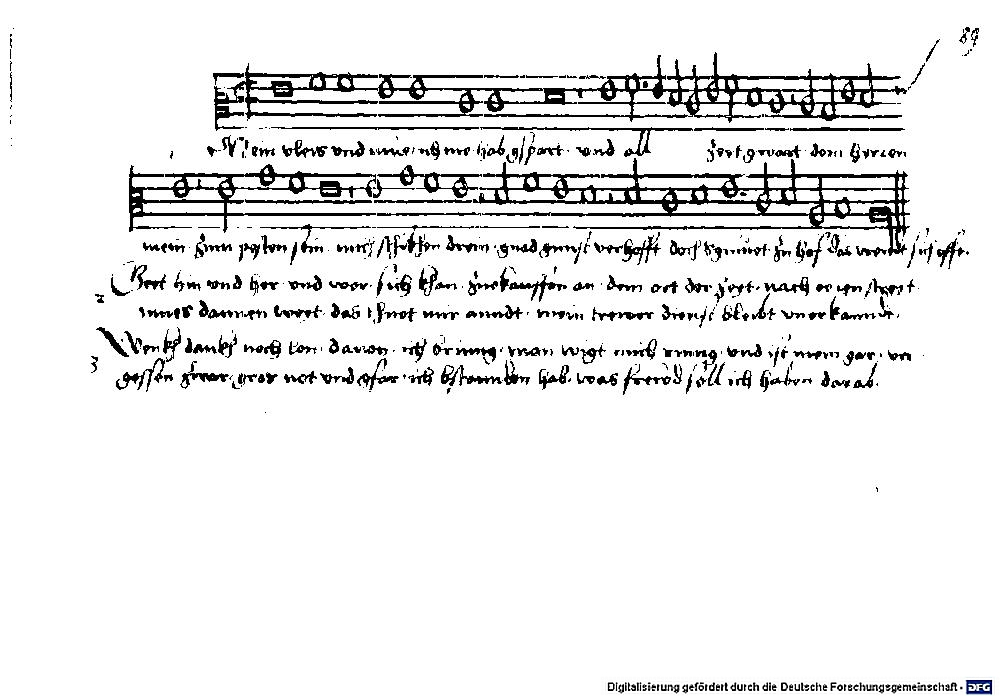 89
Mein vleis und mue ich nie hab gspart · und all zeit gwart dem herren
mein · zum pesten sein · mich schikhen drein · gnad gunst verhofft doch gmuet zu hof das wendt sich offt ·
2 Geet hin und her · und wer · sich khan · zuekauffen an · dem ort der zeyt · nach eren streyt ·
dannen weyt · das thuet mir anndt · mein trewer dienst bleibt unerkanndt ·
3 Wenkh dankh noch lon · davon · ich bring · man wigt mich ring · und ist mein gar · ver
gessen zwar · gros not und gfar · ich bstannden hab · was frewd soll ich haben darab ·
Digitalisierung gefördert durch die Deutsche Forschungsgemeinschaft - DFG